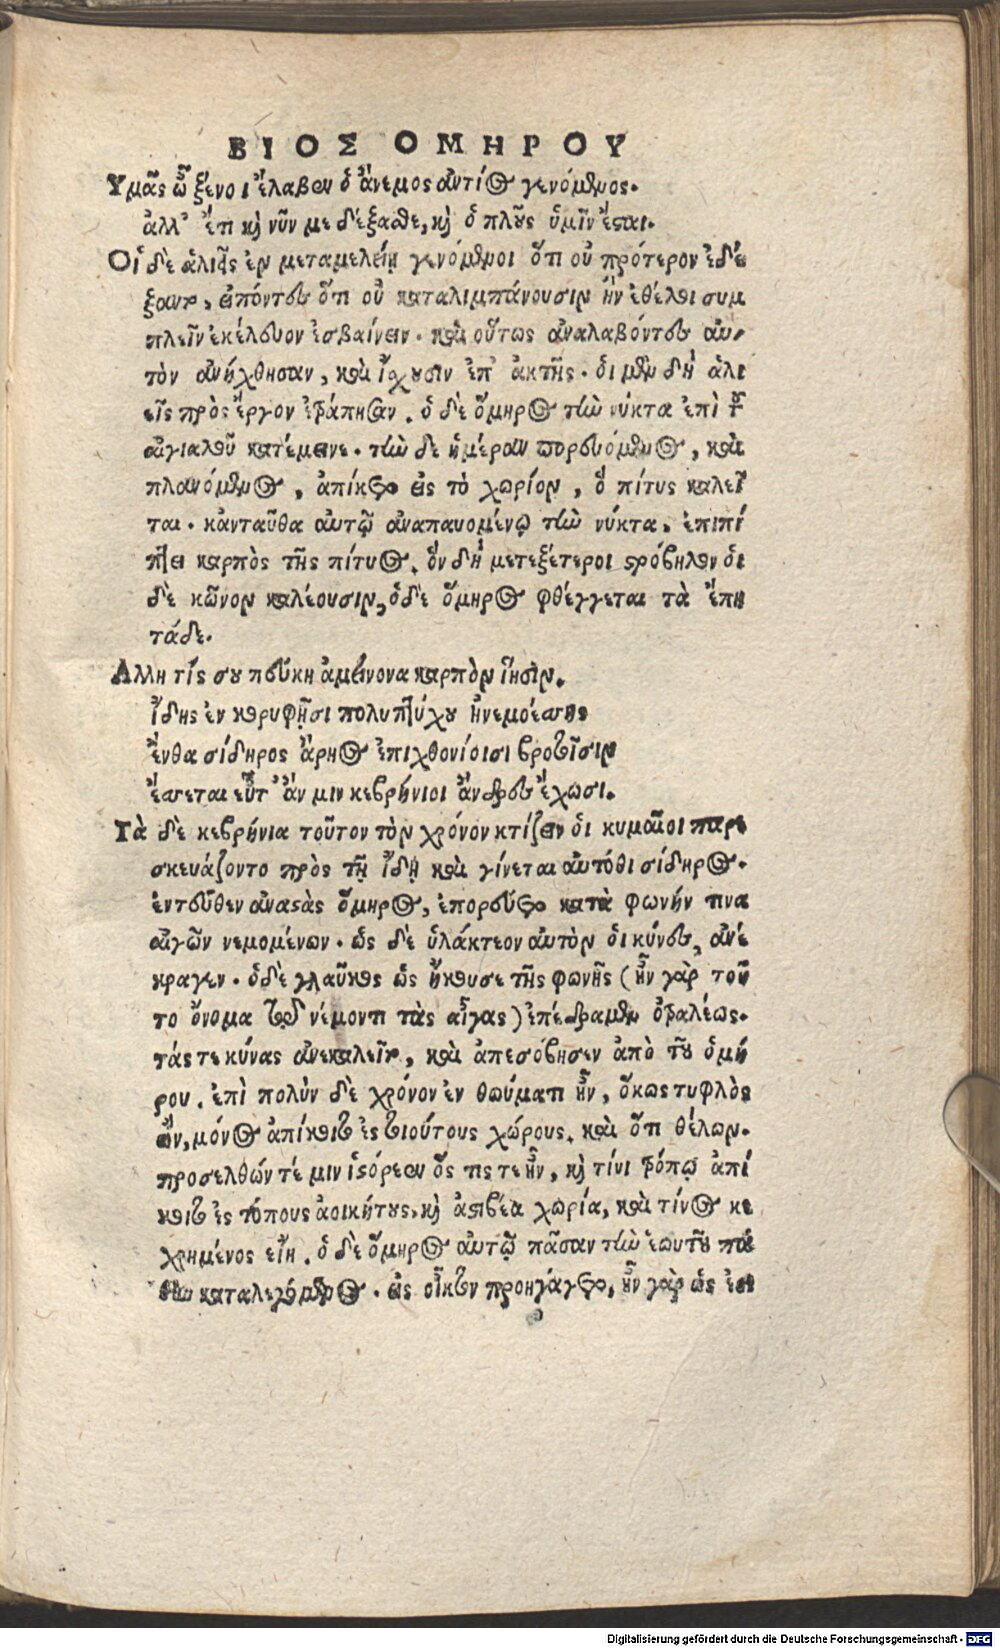 ΒΙΟΣ ΟΜΗΡΟΥ
Υμᾶς ὦ ξένοι ἔλαβεν ὁ ἄνεμος ἀντίος γενόμενος.
ἀλλ' ἔτι καὶ νῦν με δέξασθε, καὶ ὁ πλοῦς ὑμῖν ἔσται.
Οἱ δὲ ἁλιεῖς ἐν μεταμελείῃ γενόμενοι ὅτι οὐ πρότερον ἐδέ
ξαντο, εἰπόντες ὅτι οὐ καταλιμπάνουσιν ἢν ἐθέλοι συμ
πλεῖν ἐκέλευον ἐσβαίνειν. καὶ οὕτως ἀναλαβόντες αὐ-
τὸν ἀνήχθησαν, καὶ ἴσχουσιν ἐπ' ἀκτῆς. οἱ μὲν δὴ ἁλι
εῖς πρὸς ἔργον ἐτράπησαν. ὁ δὲ ὅμηρος τὴν νύκτα ἐπὶ τοῦ
αἰγιαλοῦ κατέμεινε. τὴν δὲ ἡμέραν πορευόμενος, καὶ
πλανόμενος, ἀπίκετο εἰς τὸ χωρίον, ὃ πίτυς καλεῖ
ται. κἀνταῦθα αὐτῷ ἀναπαυομένῳ τὴν νύκτα. ἐπιπί
πτει καρπὸς τῆς πίτυος. ὃν δὴ μετεξέτεροι στρόβηλον οἱ
δὲ κῶνον καλέουσιν, ὁδὲ ὅμηρος φθέγγεται τὰ ἔπη
τάδε.
Αλλη τίς σου πεύκη ἀμείνονα καρπὸν ἵησιν.
ἴδης ἐν κορυφῇσι πολυπτύχου ἠνεμοέσσης
ἔνθα σίδηρος ἄρηος ἐπιχθονίοισι βροτοῖσιν
ἔσσεται εὖτ' ἄν μιν κεβρήνιοι ἄνδρες ἔχωσι.
Τὰ δὲ κεβρήνια τοῦτον τὸν χρόνον κτίζειν οἱ κυμαῖοι παρε
σκευάζοντο πρὸς τῇ ἴδῃ καὶ γίνεται αὐτόθι σίδηρος.
ἐντεῦθεν ἀναστὰς ὅμηρος, ἐπορεύετο κατὰ φωνήν τινα
αἰγῶν νεμομένων. ὡς δὲ ὑλάκτεον αὐτὸν οἱ κύνες, ἀνέ
κραγεν. ὁδὲ γλαῦκος ὡς ἤκουσε τῆς φωνῆς (ἦν γὰρ τοῦ
το ὄνομα τῷ νέμοντι τὰς αἶγας) ἐπέδραμεν ὀτραλέως.
τάς τε κύνας ἀνεκαλεῖτο, καὶ ἀπεσόβησεν ἀπὸ τοῦ ὁμή
ρου. ἐπὶ πολὺν δὲ χρόνον ἐν θωύματι ἦν, ὅκως τυφλὸς
ὢν, μόνος ἀπίκοιτο ἐς τοιούτους χώρους. καὶ ὅτι θέλων.
προσελθών τέ μιν ἱστόρεεν ὅς τις τε ἦν, καὶ τίνι τρόπῳ ἀπί
κοιτο ἐς τόπους ἀοικήτους, καὶ ἀστιβέα χωρία, καὶ τίνος κε
χρημένος εἴη. ὁ δὲ ὅμηρος αὐτῷ πᾶσαν τὴν ἑωυτοῦ πά
θην καταλεγόμενος. εἰς οἶκτον προηγάγετο, ἦν γὰρ ὡς ἔοι
Digitalisierung gefördert durch die Deutsche Forschungsgemeinschaft - DFG